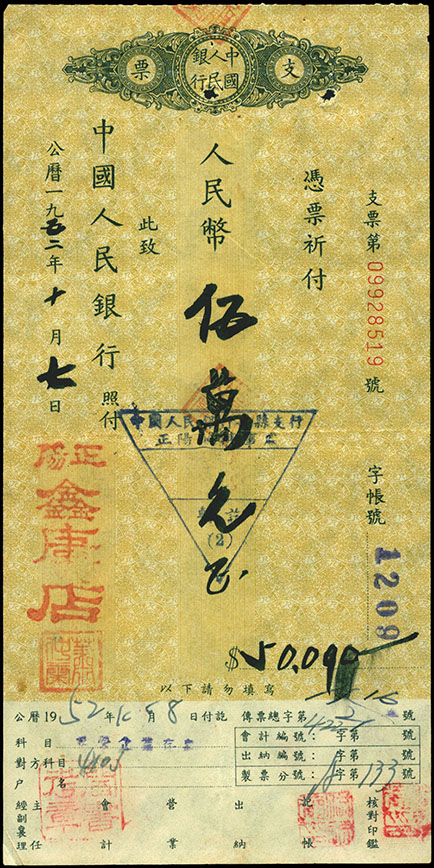 支票第09928519號
字帳號1209
憑票祈付
人民幣伍萬元正
此致
中國人民銀行照付
公曆一九五二年十月七日
中國人民銀行
支票
中國人民銀行 縣支行
正陽
(2)
正陽
鑫康店
$50,000
以下請勿填寫
公曆1952年10月8日付訖
傳票總字第 號
會計編號:字第 號
出納編號:字第 號
製票分號:字第133號
科目
對方科目
戶名
主任
經副襄理
會計
營業
出納
記帳
核對印鑑